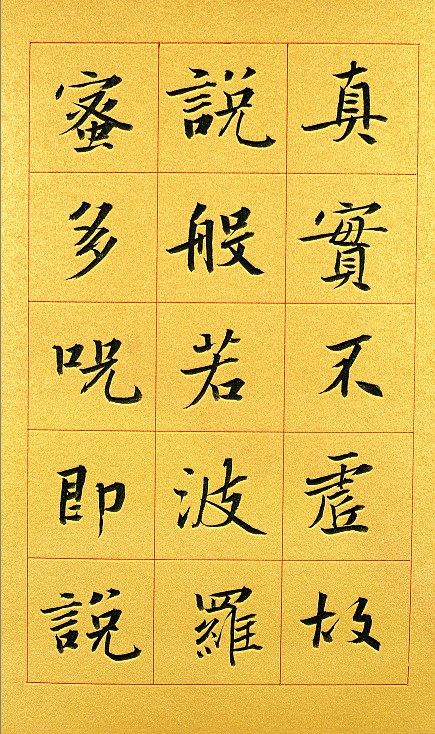 真實不虛故
說般若波羅
蜜多呪即說